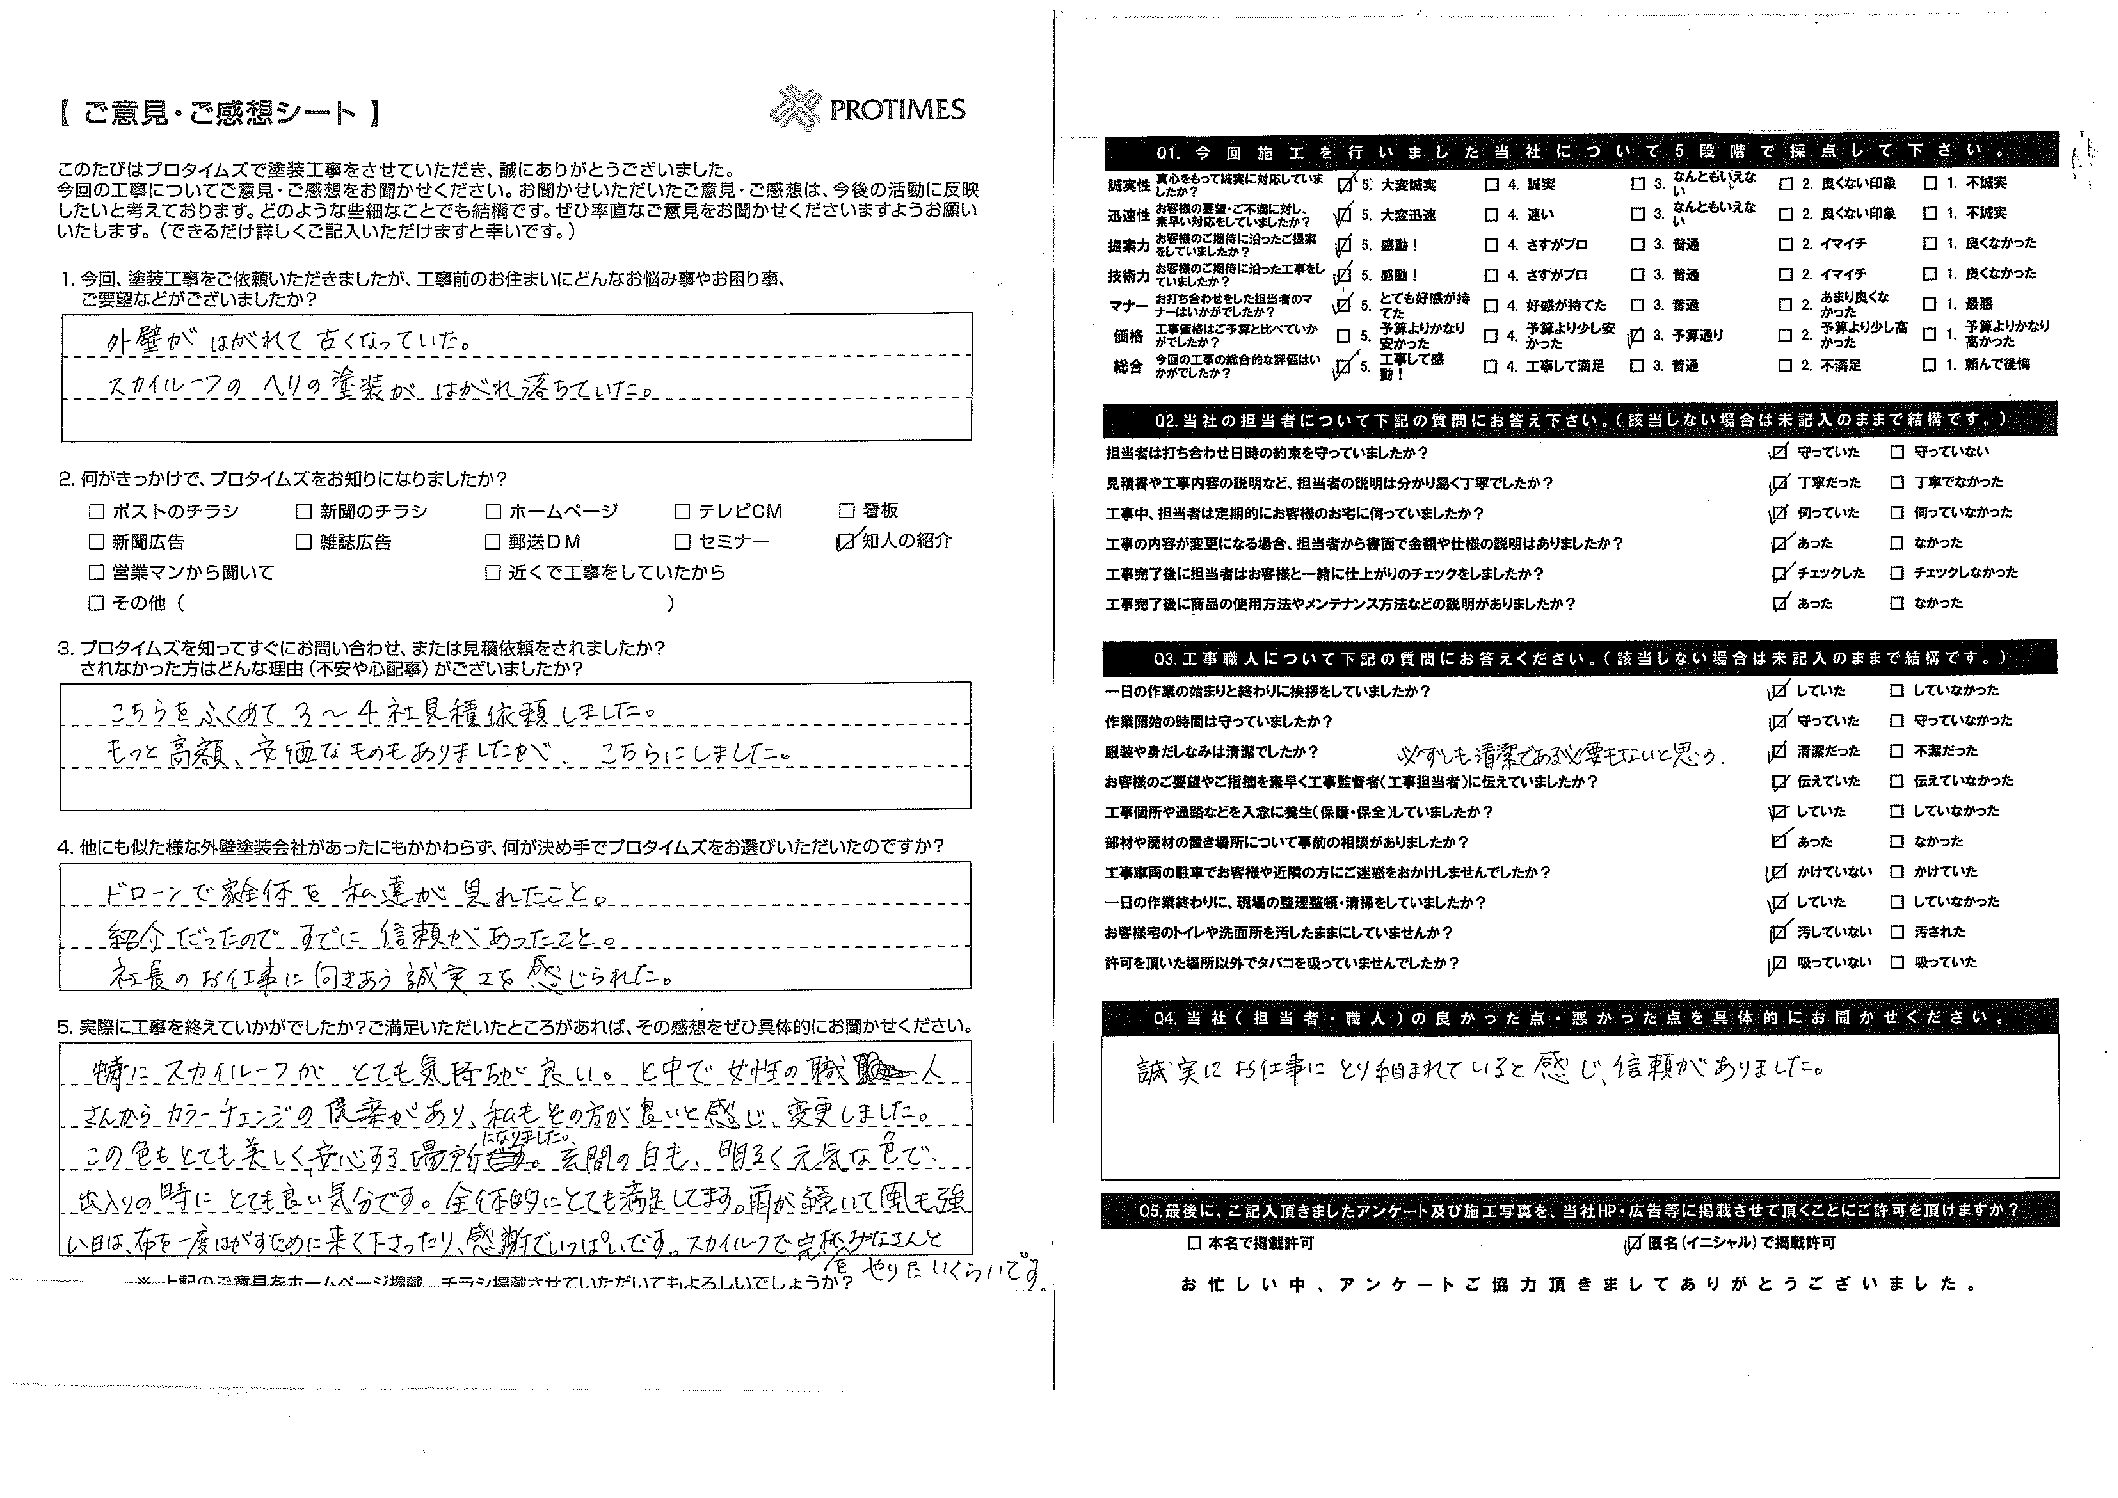 【 ご意見・ご感想シート 】
PROTIMES
このたびはプロタイムズで塗装工事をさせていただき、誠にありがとうございました。
今回の工事についてご意見・ご感想をお聞かせください。お聞かせいただいたご意見・ご感想は、今後の活動に反映
したいと考えております。どのような些細なことでも結構です。ぜひ率直なご意見をお聞かせくださいますようお願い
いたします。（できるだけ詳しくご記入いただけますと幸いです。）
1. 今回、塗装工事をご依頼いただきましたが、工事前のお住まいにどんなお悩み事やお困り事、
ご要望などがございましたか？
外壁が はがれて 古くなっていた。
スカイルーフの へりの塗装が はがれ落ちていた。
2. 何がきっかけで、プロタイムズをお知りになりましたか？
□ ポストのチラシ □ 新聞のチラシ □ ホームページ □ テレビCM □ 看板
□ 新聞広告 □ 雑誌広告 □ 郵送DM □ セミナー ☑ 知人の紹介
□ 営業マンから聞いて □ 近くで工事をしていたから
□ その他（ ）
3. プロタイムズを知ってすぐにお問い合わせ、または見積依頼をされましたか？
されなかった方はどんな理由（不安や心配事）がございましたか？
こちらをふくめて 3〜4社見積依頼しました。
もっと高額、安価なものもありましたが、こちらにしました。
4. 他にも似た様な外壁塗装会社があったにもかかわらず、何が決め手でプロタイムズをお選びいただいたのですか？
ドローンで家全体を 私達が 見れたこと。
紹介だったので すでに 信頼があったこと。
社長のお仕事に向きあう誠実さを感じられた。
5. 実際に工事を終えていかがでしたか？ご満足いただいたところがあれば、その感想をぜひ具体的にお聞かせください。
特にスカイルーフが とても気持ちが良い。と中で女性の職人
さんからカラーチェンジの提案があり、私もその方が良いと感じ、変更しました。
この色もとても美しく、安心する場所になりました。玄関の白も、明るく元気な色で、
出入りの時にとても良い気分です。全体的にとても満足してます。雨が続いて風も強
い日は、布を一度はがすために来て下さったり、感謝でいっぱいです。スカイルーフで みなさんと
やりたいくらいです。
※ 上記のご意見をホームページ掲載、チラシ掲載させていただいてもよろしいでしょうか？
Q1. 今回施工を行いました当社について5段階で採点して下さい。
誠実性 真心をもって誠実に対応していましたか？ ☑ 5. 大変誠実 □ 4. 誠実 □ 3. なんともいえない □ 2. 良くない印象 □ 1. 不誠実
迅速性 お客様の要望・ご不満に対し、素早い対応をしていましたか？ ☑ 5. 大変迅速 □ 4. 速い □ 3. なんともいえない □ 2. 良くない印象 □ 1. 不誠実
提案力 お客様のご期待に沿ったご提案をしていましたか？ ☑ 5. 感動！ □ 4. さすがプロ □ 3. 普通 □ 2. イマイチ □ 1. 良くなかった
技術力 お客様のご期待に沿った工事をしていましたか？ ☑ 5. 感動！ □ 4. さすがプロ □ 3. 普通 □ 2. イマイチ □ 1. 良くなかった
マナー お打ち合わせをした担当者のマナーはいかがでしたか？ ☑ 5. とても好感が持てた □ 4. 好感が持てた □ 3. 普通 □ 2. あまり良くなかった □ 1. 最悪
価格 工事価格はご予算と比べていかがでしたか？ □ 5. 予算よりかなり安かった □ 4. 予算より少し安かった ☑ 3. 予算通り □ 2. 予算より少し高かった □ 1. 予算よりかなり高かった
総合 今回の工事の総合的な評価はいかがでしたか？ ☑ 5. 工事して感動！ □ 4. 工事して満足 □ 3. 普通 □ 2. 不満足 □ 1. 頼んで後悔
Q2.当社の担当者について下記の質問にお答え下さい。（該当しない場合は未記入のままで結構です。）
担当者は打ち合わせ日時の約束を守っていましたか？ ☑ 守っていた □ 守っていない
見積書や工事内容の説明など、担当者の説明は分かり易く丁寧でしたか？ ☑ 丁寧だった □ 丁寧でなかった
工事中、担当者は定期的にお客様のお宅に伺っていましたか？ ☑ 伺っていた □ 伺っていなかった
工事の内容が変更になる場合、担当者から書面で金額や仕様の説明はありましたか？ ☑ あった □ なかった
工事完了後に担当者はお客様と一緒に仕上がりのチェックをしましたか？ ☑ チェックした □ チェックしなかった
工事完了後に商品の使用方法やメンテナンス方法などの説明がありましたか？ ☑ あった □ なかった
Q3.工事職人について下記の質問にお答えください。（該当しない場合は未記入のままで結構です。）
一日の作業の始まりと終わりに挨拶をしていましたか？ ☑ していた □ していなかった
作業開始の時間は守っていましたか？ ☑ 守っていた □ 守っていなかった
服装や身だしなみは清潔でしたか？ 必ずしも清潔である必要もないと思う。 ☑ 清潔だった □ 不潔だった
お客様のご要望やご指摘を素早く工事監督者（工事担当者）に伝えていましたか？ ☑ 伝えていた □ 伝えていなかった
工事個所や通路などを入念に養生（保護・保全）していましたか？ ☑ していた □ していなかった
部材や廃材の置き場所について事前の相談がありましたか？ ☑ あった □ なかった
工事車両の駐車でお客様や近隣の方にご迷惑をおかけしませんでしたか？ ☑ かけていない □ かけていた
一日の作業終わりに、現場の整理整頓・清掃をしていましたか？ ☑ していた □ していなかった
お客様宅のトイレや洗面所を汚したままにしていませんか？ ☑ 汚していない □ 汚された
許可を頂いた場所以外でタバコを吸っていませんでしたか？ ☑ 吸っていない □ 吸っていた
Q4.当社（担当者・職人）の良かった点・悪かった点を具体的にお聞かせください。
誠実にお仕事にとり組まれていると感じ、信頼がありました。
Q5.最後に、ご記入頂きましたアンケート及び施工写真を、当社HP・広告等に掲載させて頂くことにご許可を頂けますか？
□ 本名で掲載許可 ☑ 匿名（イニシャル）で掲載許可
お忙しい中、アンケートご協力頂きましてありがとうございました。